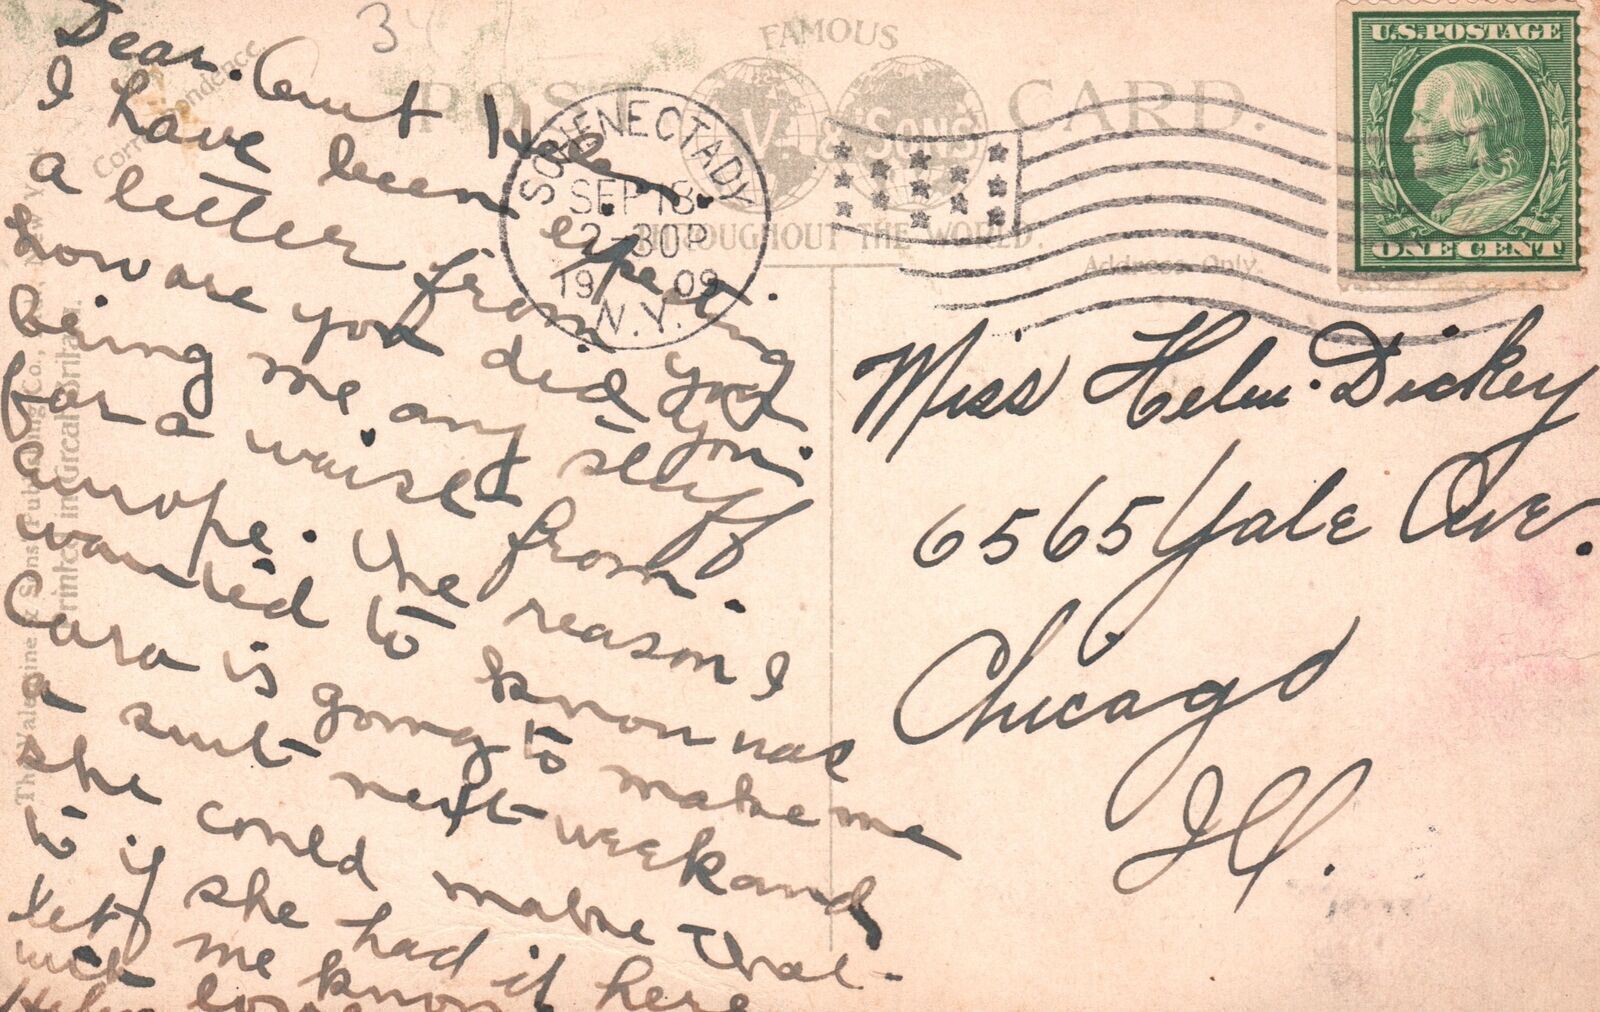 34
FAMOUS
POST CARD.
V. & SONS
THROUGHOUT THE WORLD.
Correspondence.
Address Only.
SCHENECTADY
SEP 18
2-30P
1909
N.Y.
U.S. POSTAGE
ONE CENT
Dear. Aunt Helen.
I have been expecting
a letter from you.
how are you did you
bring me any stuff
for a waist from
Europe. the reason I
wanted to know was
Cara is going to make me
a suit next week and
she could make that
to if she had it here
let me know
with love
Helen
Miss Helen Dickey
6565 Yale Ave.
Chicago
Ill.
The Valentine & Sons Publishing Co., New York
Printed in Great Britain.